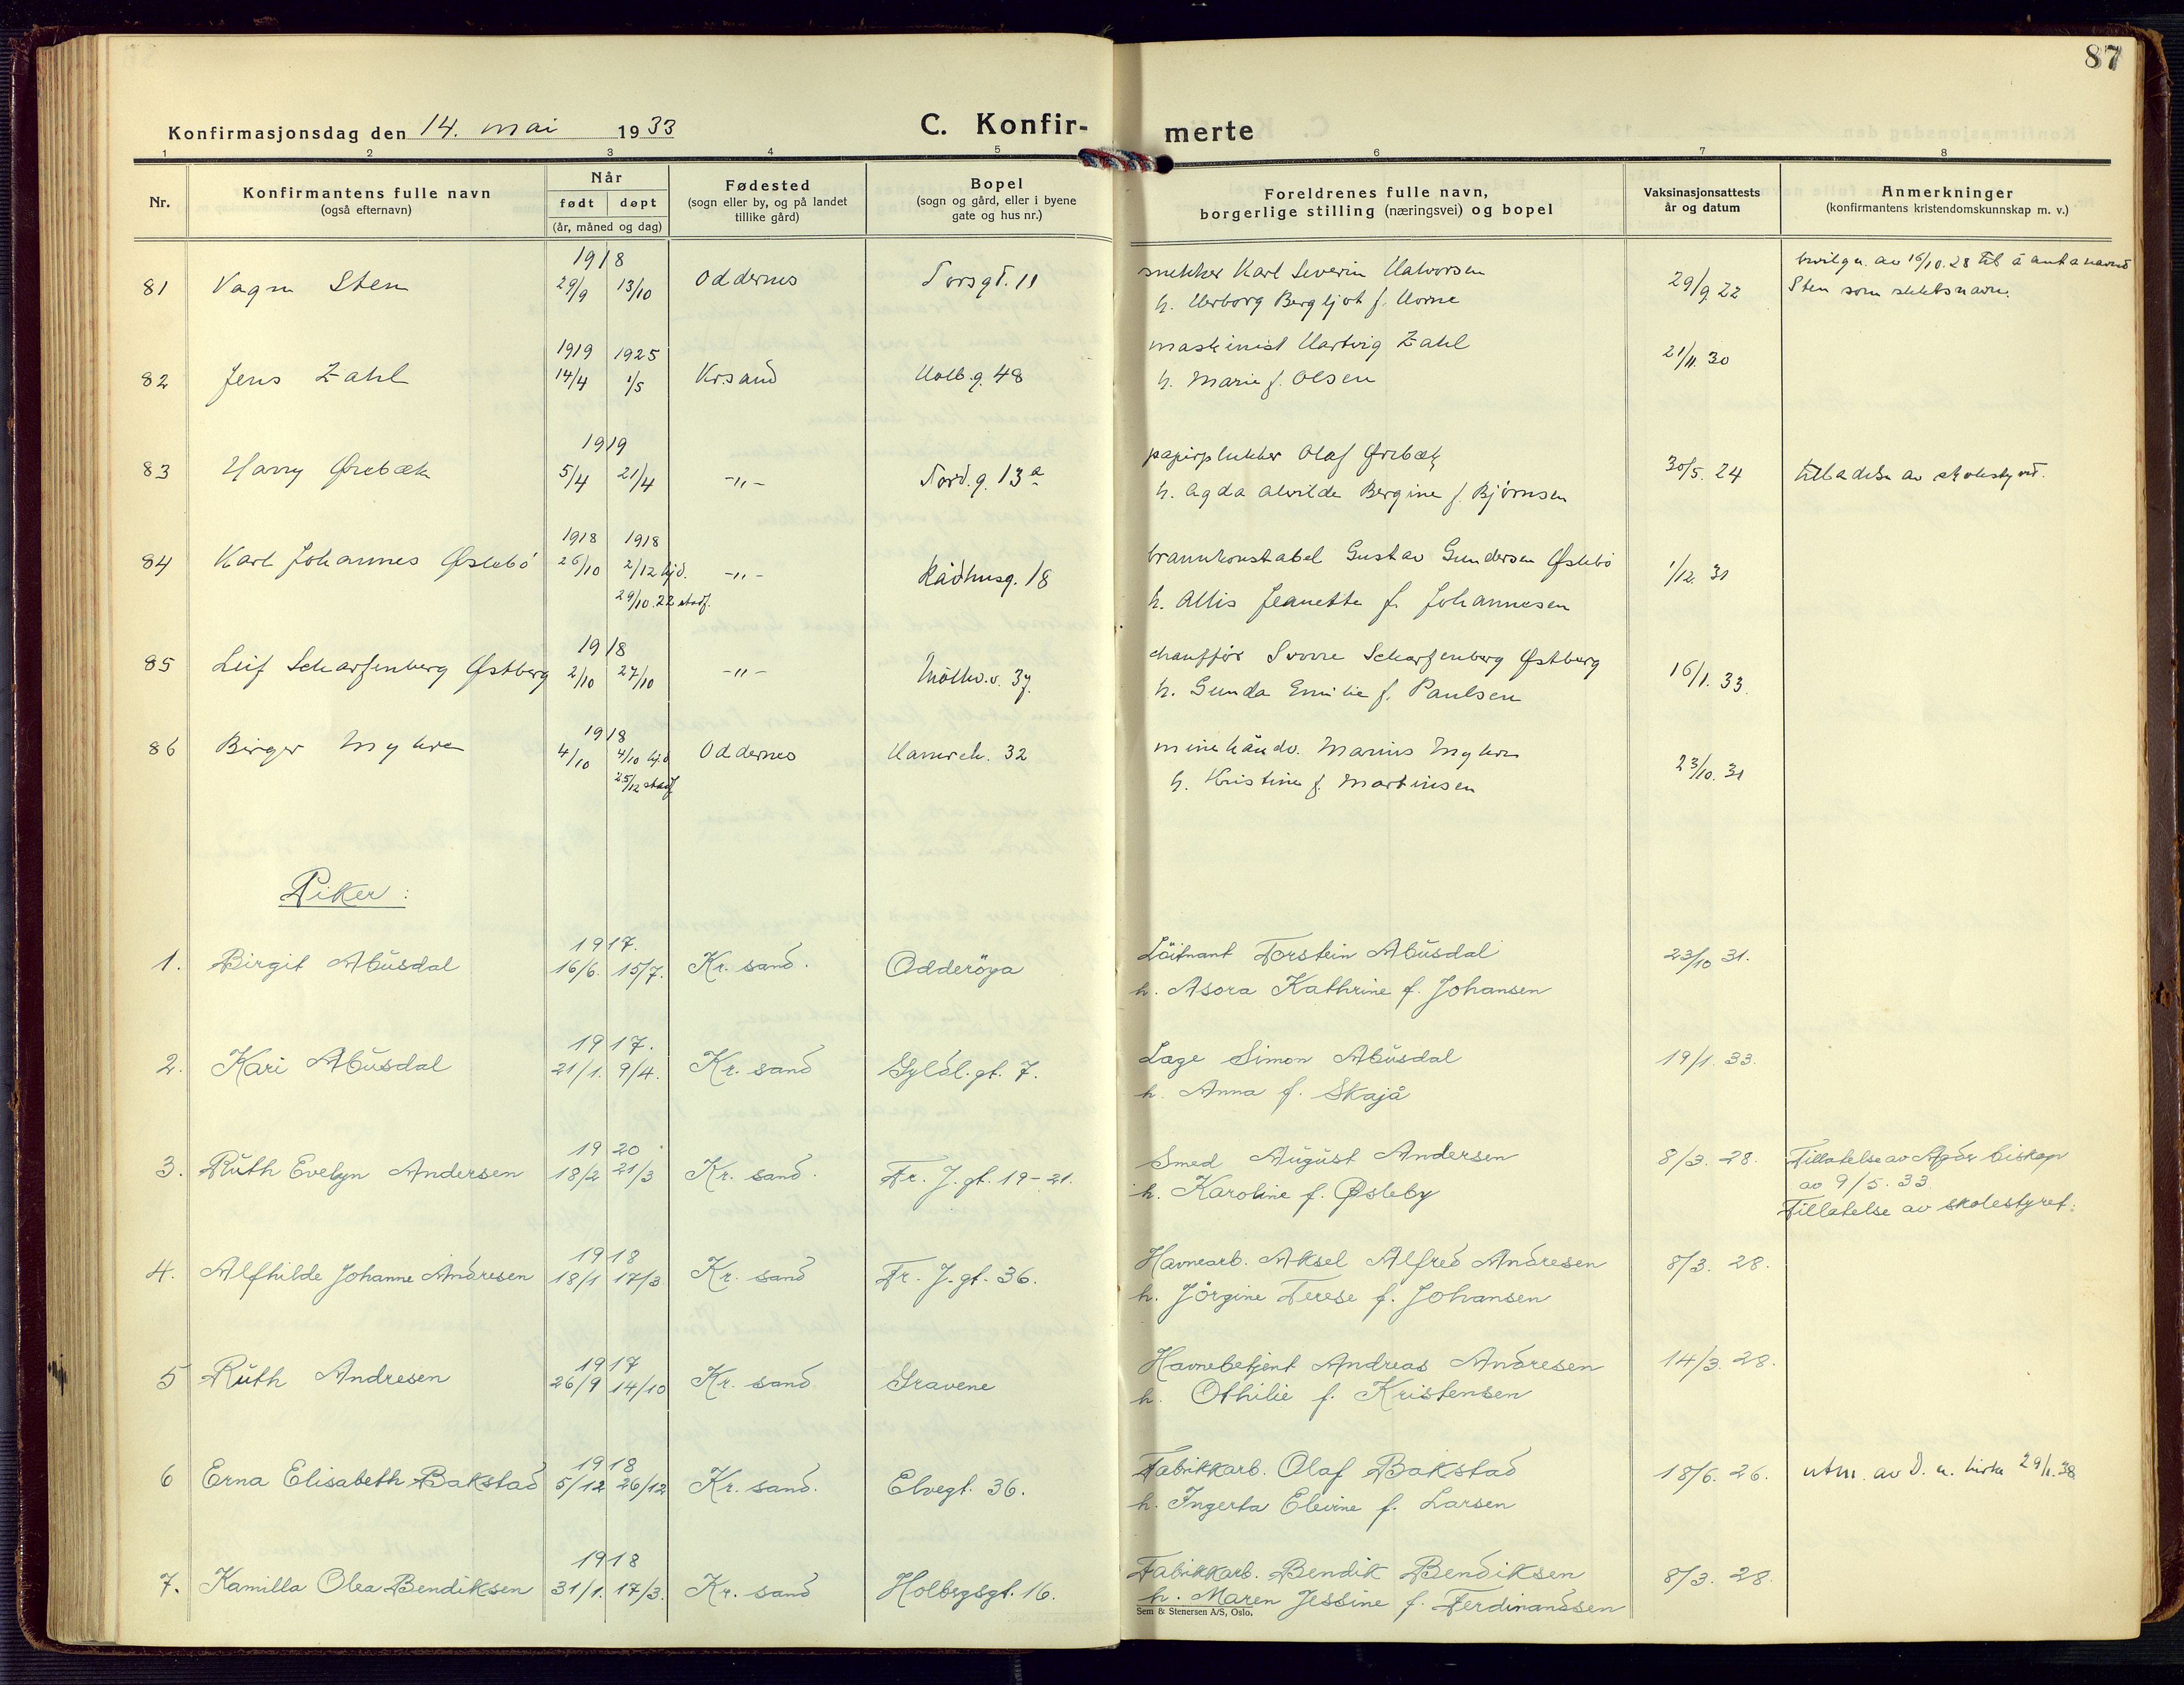 87
Konfirmasjonsdag den 14. mai 1933
C. Konfir-
merte
1 2 3 4 5 6 7 8
Nr.
Konfirmantens fulle navn
(også efternavn)
Når
født døpt
(år, måned og dag)
Fødested
(sogn eller by, og på landet
tillike gård)
Bopel
(sogn og gård, eller i byene
gate og hus nr.)
Foreldrenes fulle navn,
borgerlige stilling (næringsvei) og bopel
Vaksinasjonsattests
år og datum
Anmerkninger
(konfirmantens kristendomskunnskap m. v.)
1918
81 Vagn Sten 29/9 13/10 Oddernes Torsgt. 11
snekker Karl Severin Halvorsen
h. Herborg Bergljot f. Horne
29/9 22
bevilgn. av 16/10.28 til å anta navnet
Sten som slektsnavn.
1919 1925
82 Jens Zahl 14/4 1/5 Kr.sand Holb.g. 48
maskinist Hartvig Zahl
h. Marie f. Olsen
21/11 30
1919
83 Harry Ørebæk 5/4 21/4 -"- Tord.g. 13a
Olaf Ørebæk
h. Agda Alvilde Bergine f. Bjørnsen
30/5. 24
av skolestyret.
1918 1918
84 Karl Johannes Øslebö 26/10 2/12 hjd. -"- Rådhusg. 18
29/10.22 stadf.
brannkonstabel Gustav Gundersen Øslebö
h. Allis Jeanette f. Johannesen
1/12. 31
1918
85 Leif Scharfenberg Østberg 2/10 27/10 -"- 37
chaufför Sverre Scharfenberg Østberg
h. Gunda Emilie f. Paulsen
16/1. 33.
1918
86 Birger Myhre 4/10 4/10 hjd Oddernes 32
25/12 stadf
Marius Myhre
h. Kristine f. Martinsen
23/10. 31
Piker:
1917.
1. Birgit Åbŭsdal 16/6. 15/7. Kr. sand. Odderöya
Löitnant Torstein Åbŭsdal
h. Asora Kathrine f. Johansen
23/10 31.
1917.
2. Kari Abŭsdal 21/1. 9/4. Kr. sand Gyldl.gt. 7.
Lage Simon Abŭsdal
h. Anna f. Skajå
19/1. 33.
1920
3. Rŭth Evelyn Andersen 18/2 21/3 Kr. sand. Fr. J.gt. 19-21.
Smed Aŭgŭst Andersen
h. Karoline f. Øsleby
8/3. 28.
Tillatelse av Agder biskop
av 9/5. 33
Tillatelse av skolestyret.
1918
4. Alfhilde Johanne Andresen 18/1 17/3 Kr. sand Fr. J.gt. 36.
Havnearb. Aksel Alfred Andresen
h. Jörgine Terese f. Johansen
8/3. 28.
1917
5 Rŭth Andresen 26/9 14/10 Kr. sand Gravene
Havnebetjent Andreas Andresen
h. Othilie f. Kristensen
14/3. 28.
1918
6 Erna Elisabeth Bakstad 5/12 26/12 Kr. sand. Elvegt. 36.
Fabrikkarb. Olaf Bakstad
h. Ingerta Elevine f. Larsen
18/6. 26.
utm. av D. n. kirke 29/1.38
1918
7. Kamilla Olea Bendiksen 31/1. 17/3. Kr. sand Holbergsgt. 16.
Fabrikkarb. Bendik Bendiksen
h. Maren Jessine f. Ferdinandsen
8/3. 28.
Sem & Stenersen A/S, Oslo.